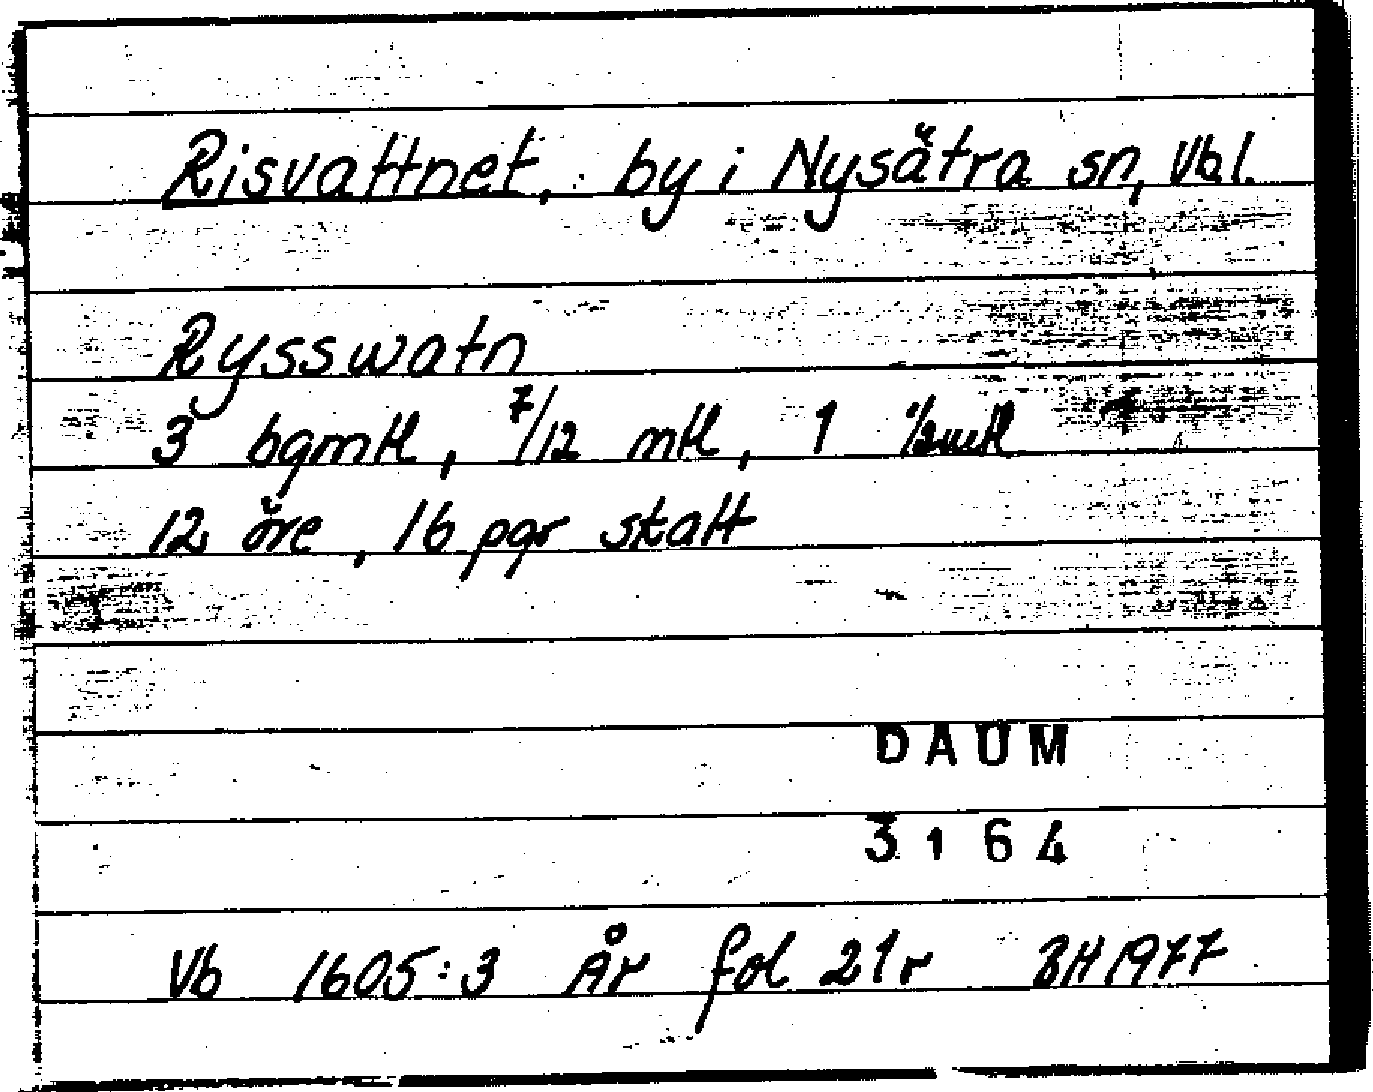 Risvattnet, by i Nysätra sn, Vbl.
Rysswatn
3 bgmtl, 7/12 mtl, 1 1/2mtl
12 öre, 16 pgr skatt
DAUM
3164
Vb 1605:3 År fol 21r BH1977